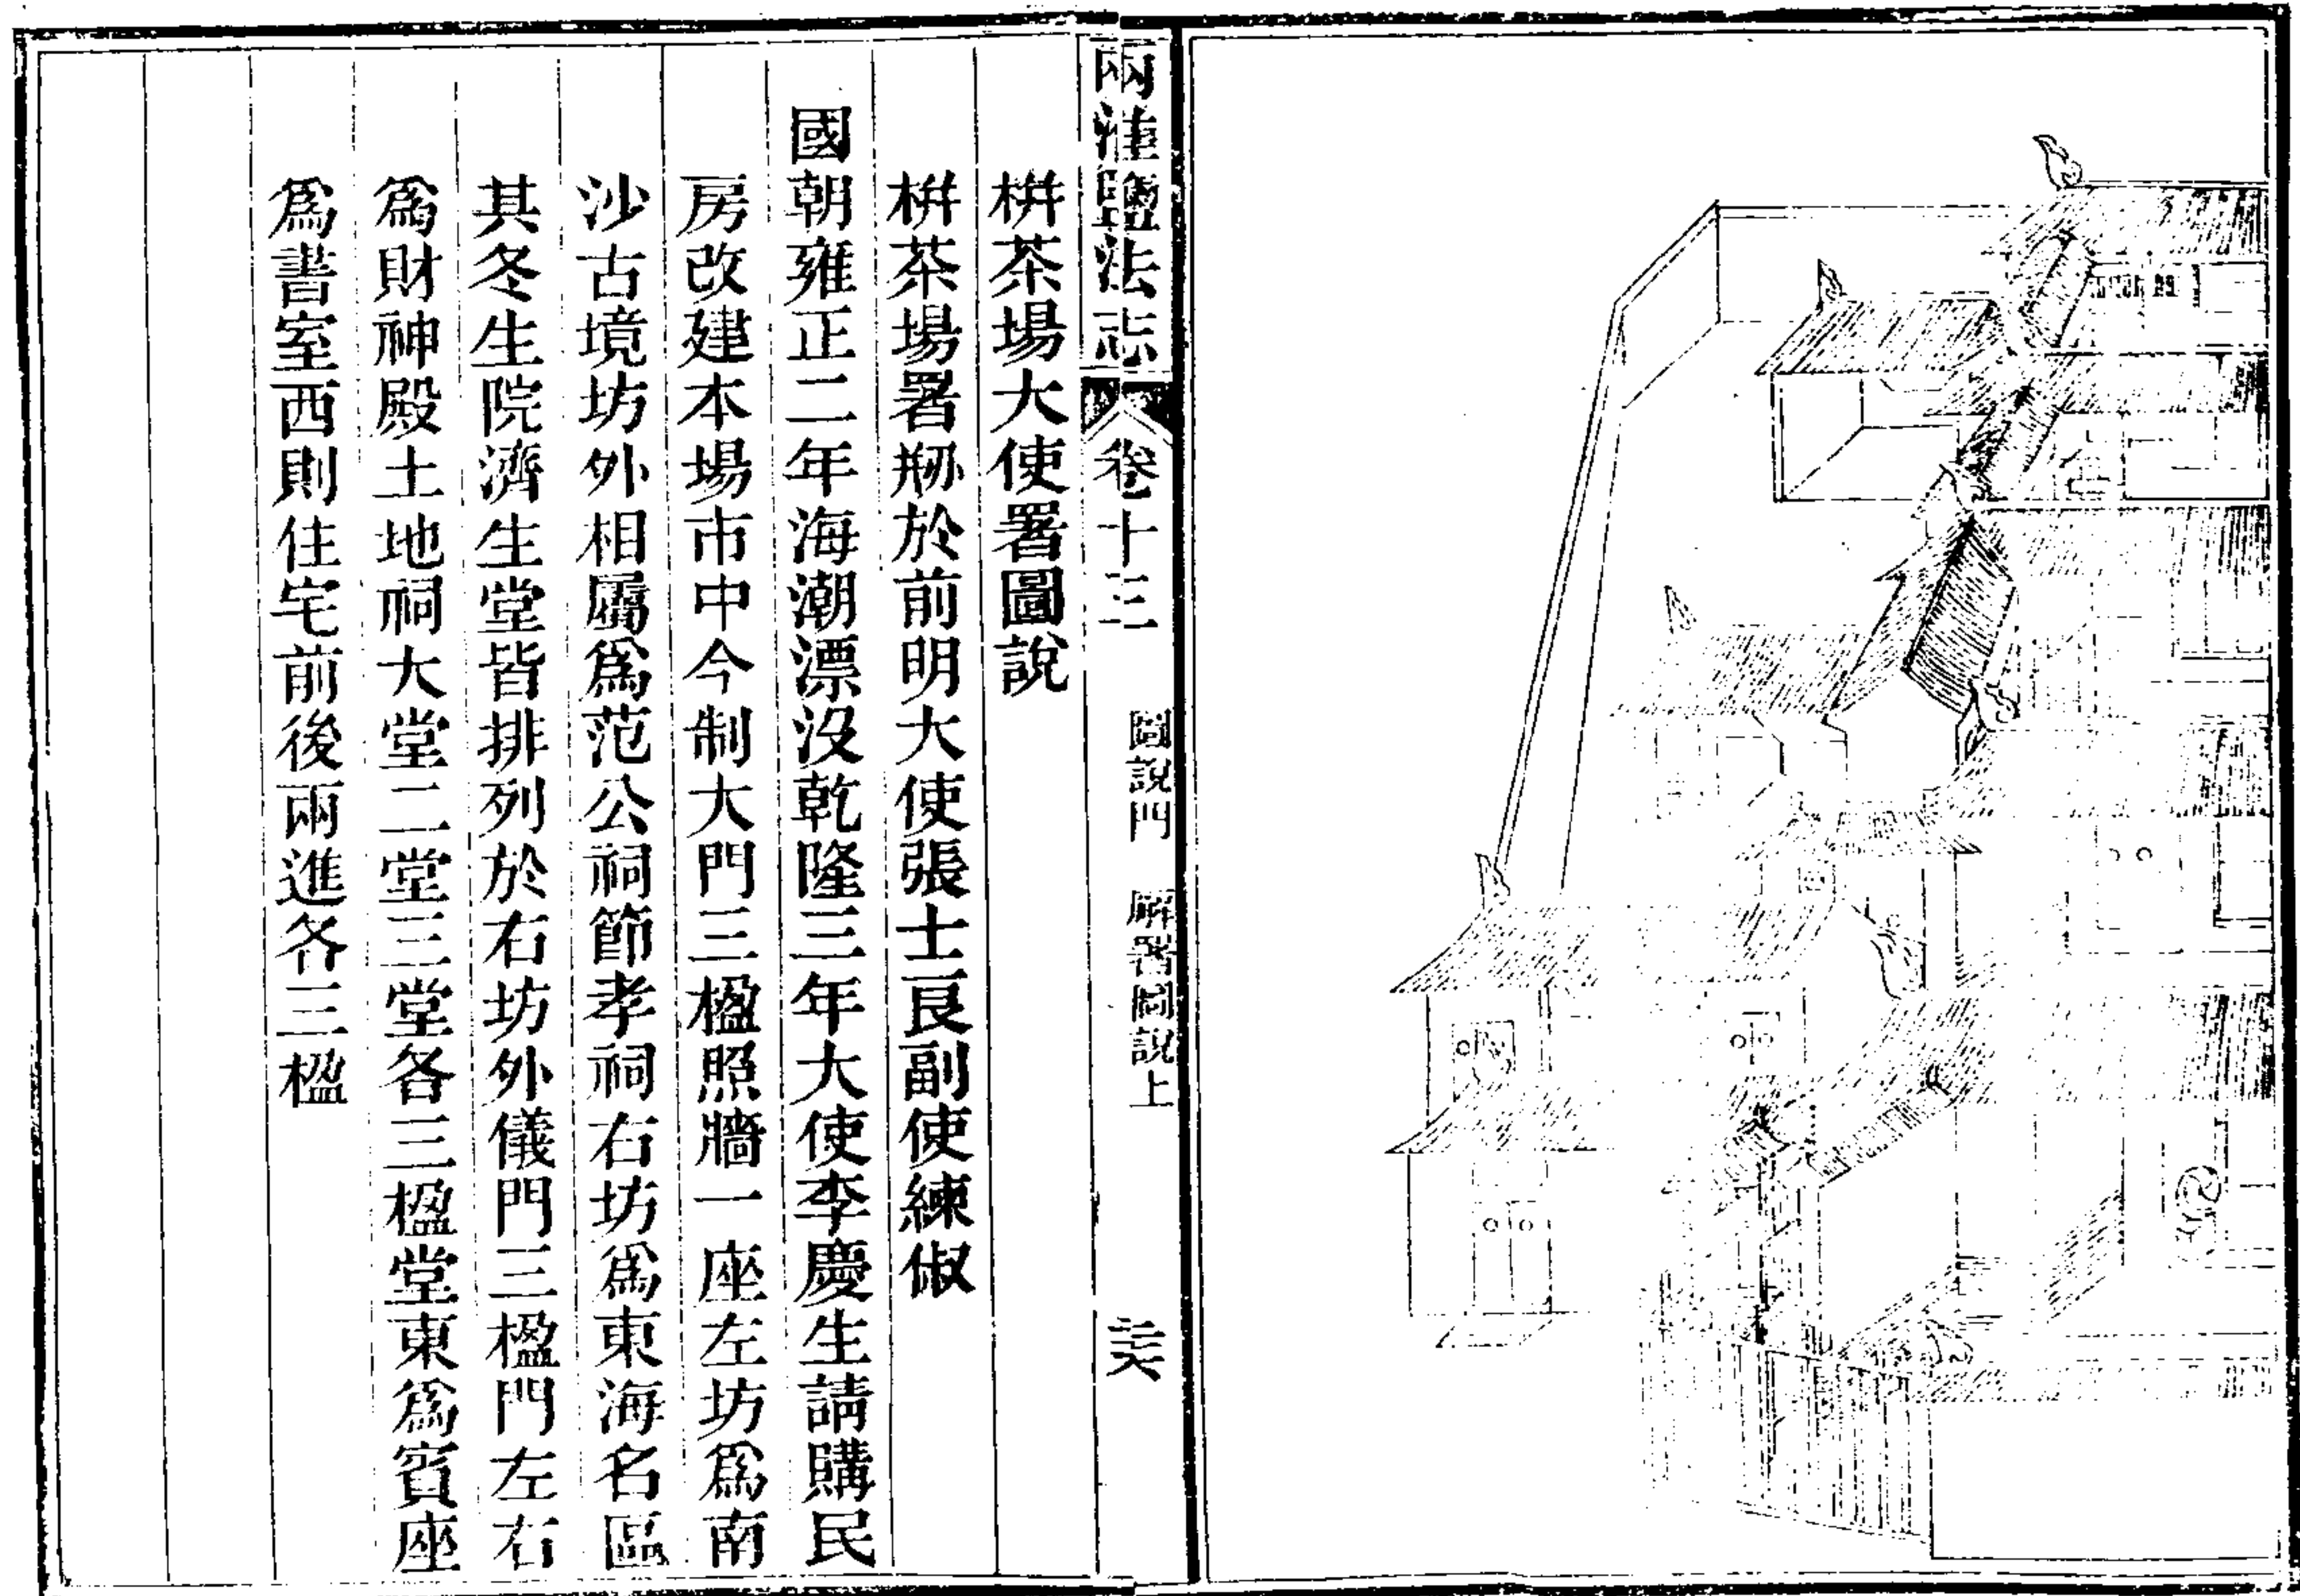 兩淮鹽法志
卷十三
圖說門 廨署圖說上
栟茶場大使署圖說
栟茶場署剙於前明大使張士良副使練俶
國朝雍正二年海潮漂沒乾隆三年大使李慶生請購民
房改建本場市中今制大門三楹照牆一座左坊爲南
沙古境坊外相屬爲范公祠節孝祠右坊爲東海名區
其冬生院濟生堂皆排列於右坊外儀門三楹門左右
爲財神殿土地祠大堂二堂三堂各三楹堂東爲賓座
爲書室西則住宅前後兩進各三楹